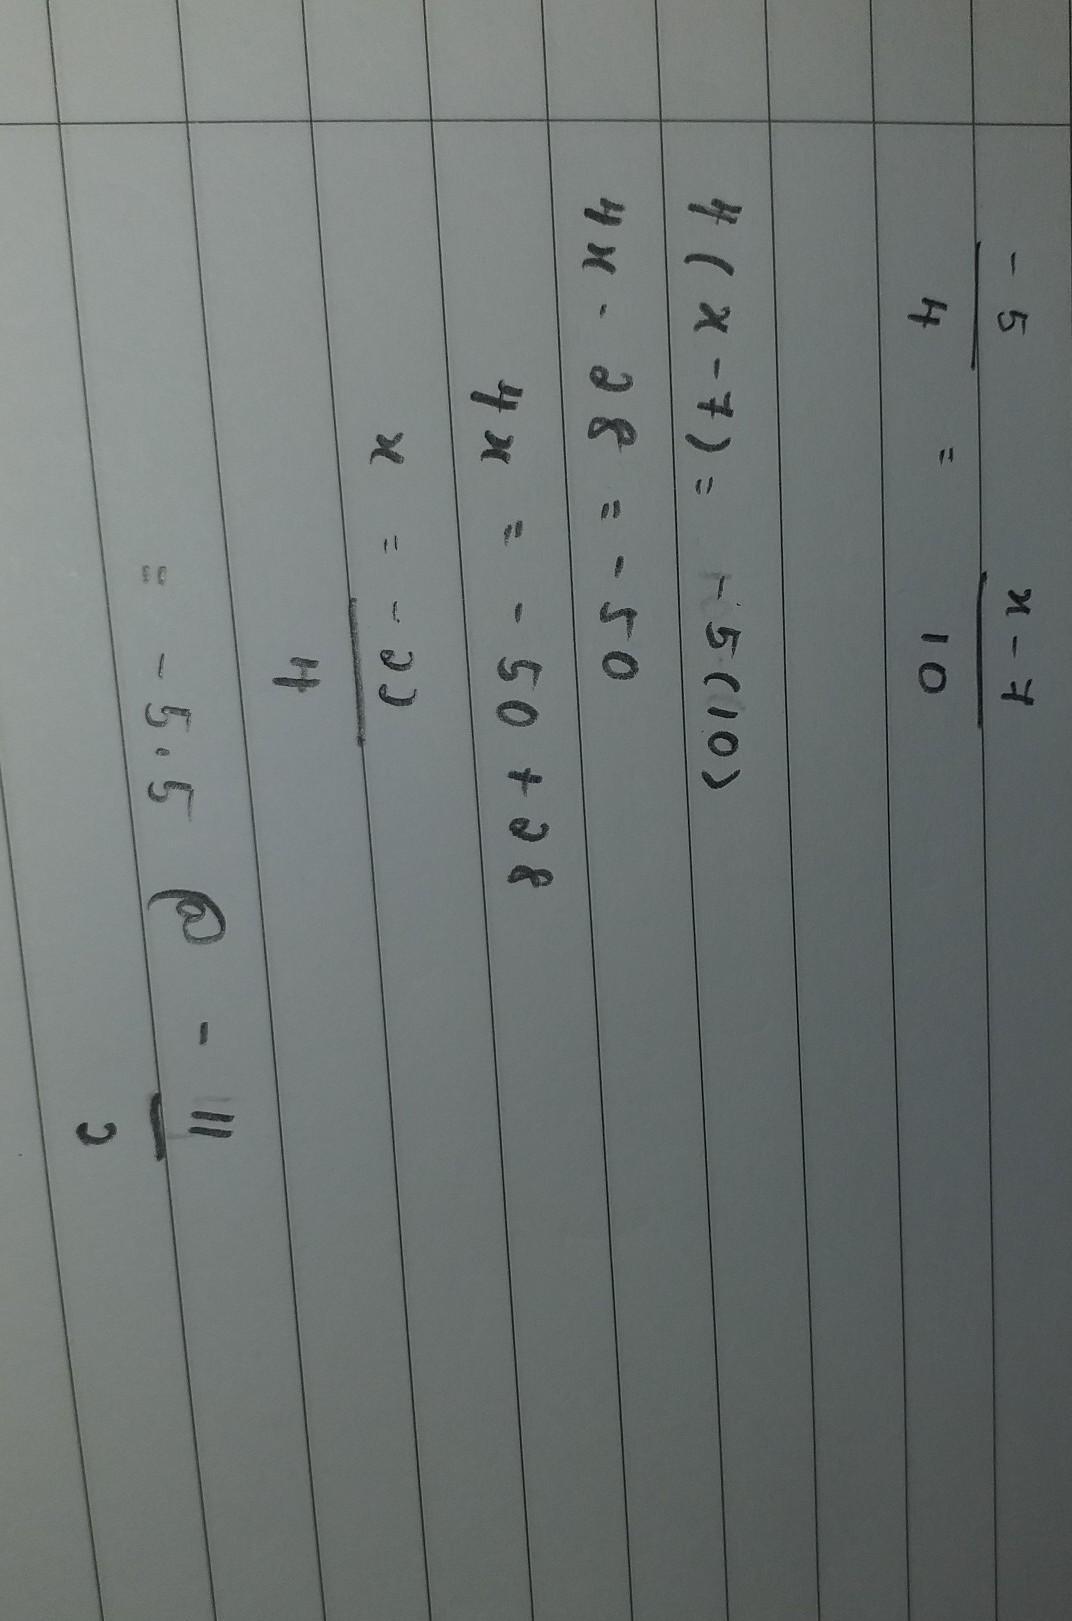 -5/4 = x-7/10
4(x-7) = -5(10)
4x - 28 = -50
4x = -50 + 28
x = -22/4
= -5.5 @ -11/2